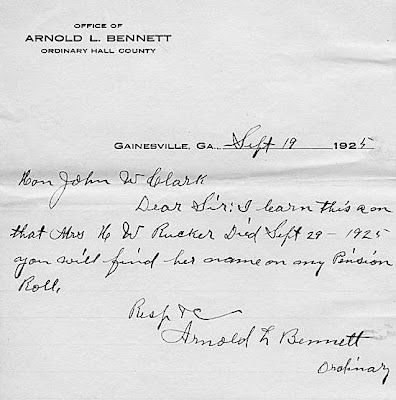 OFFICE OF
ARNOLD L. BENNETT
ORDINARY HALL COUNTY
GAINESVILLE, GA. Sept 19 1925
Hon John W Clark
Dear Sir: I learn this a on
that Mrs H W Rucker Died Sept 29 - 1925
you will find her name on my Pension
Roll,
Resp &C
Arnold L Bennett
Ordinary